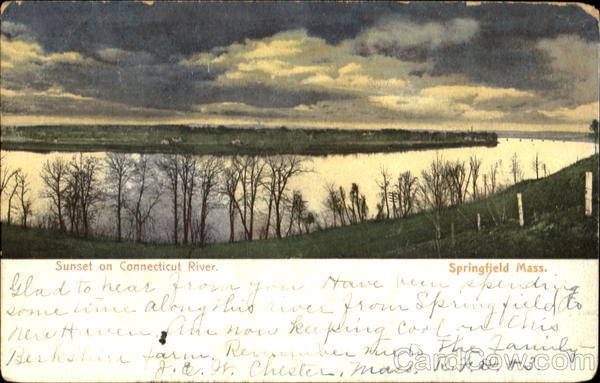 Sunset on Connecticut River.
Springfield Mass.
Glad to hear from you Have been spending
some time along this river from Springfield to
New Haven. Am now keeping cool on this
Berkshire farm. Remember me to The Family
J. C. W. Chester, Mass.
CardCow.com